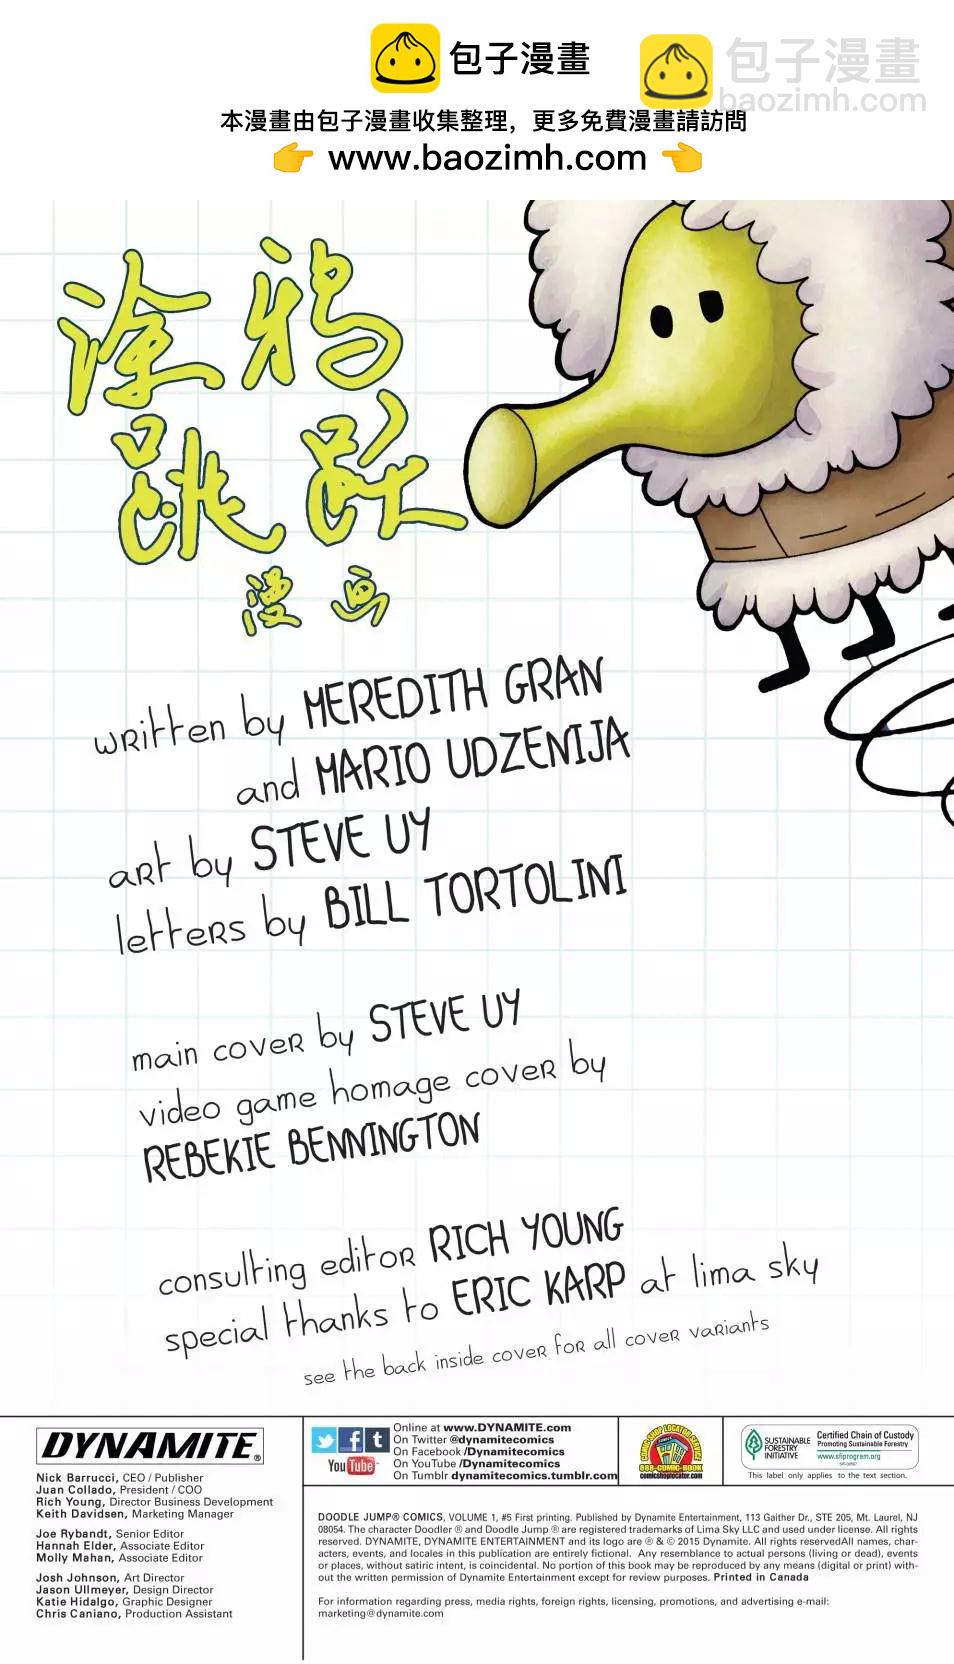 包子漫畫
包子漫畫
baozimh.com
本漫畫由包子漫畫收集整理，更多免費漫畫請訪問
👉 www.baozimh.com 👈
涂鸦
跳跃
漫画
written by MEREDITH GRAN
and MARIO UDZENIJA
art by STEVE UY
letters by BILL TORTOLINI
main cover by STEVE UY
video game homage cover by
REBEKIE BENNINGTON
consulting editor RICH YOUNG
special thanks to ERIC KARP at lima sky
see the back inside cover for all cover variants
DYNAMITE®
Nick Barrucci, CEO / Publisher
Juan Collado, President / COO
Rich Young, Director Business Development
Keith Davidsen, Marketing Manager
Joe Rybandt, Senior Editor
Hannah Elder, Associate Editor
Molly Mahan, Associate Editor
Josh Johnson, Art Director
Jason Ullmeyer, Design Director
Katie Hidalgo, Graphic Designer
Chris Caniano, Production Assistant
f t
YouTube
Online at www.DYNAMITE.com
On Twitter @dynamitecomics
On Facebook /Dynamitecomics
On YouTube /Dynamitecomics
On Tumblr dynamitecomics.tumblr.com
COMIC SHOP LOCATOR SERVICE
COMICS
888-COMIC-BOOK
comicshoplocator.com
SUSTAINABLE
FORESTRY
INITIATIVE
Certified Chain of Custody
Promoting Sustainable Forestry
www.sfiprogram.org
This label only applies to the text section.
DOODLE JUMP® COMICS, VOLUME 1, #5 First printing. Published by Dynamite Entertainment, 113 Gaither Dr., STE 205, Mt. Laurel, NJ
08054. The character Doodler ® and Doodle Jump ® are registered trademarks of Lima Sky LLC and used under license. All rights
reserved. DYNAMITE, DYNAMITE ENTERTAINMENT and its logo are ® & © 2015 Dynamite. All rights reservedAll names, char-
acters, events, and locales in this publication are entirely fictional. Any resemblance to actual persons (living or dead), events
or places, without satiric intent, is coincidental. No portion of this book may be reproduced by any means (digital or print) with-
out the written permission of Dynamite Entertainment except for review purposes. Printed in Canada
For information regarding press, media rights, foreign rights, licensing, promotions, and advertising e-mail:
marketing@dynamite.com